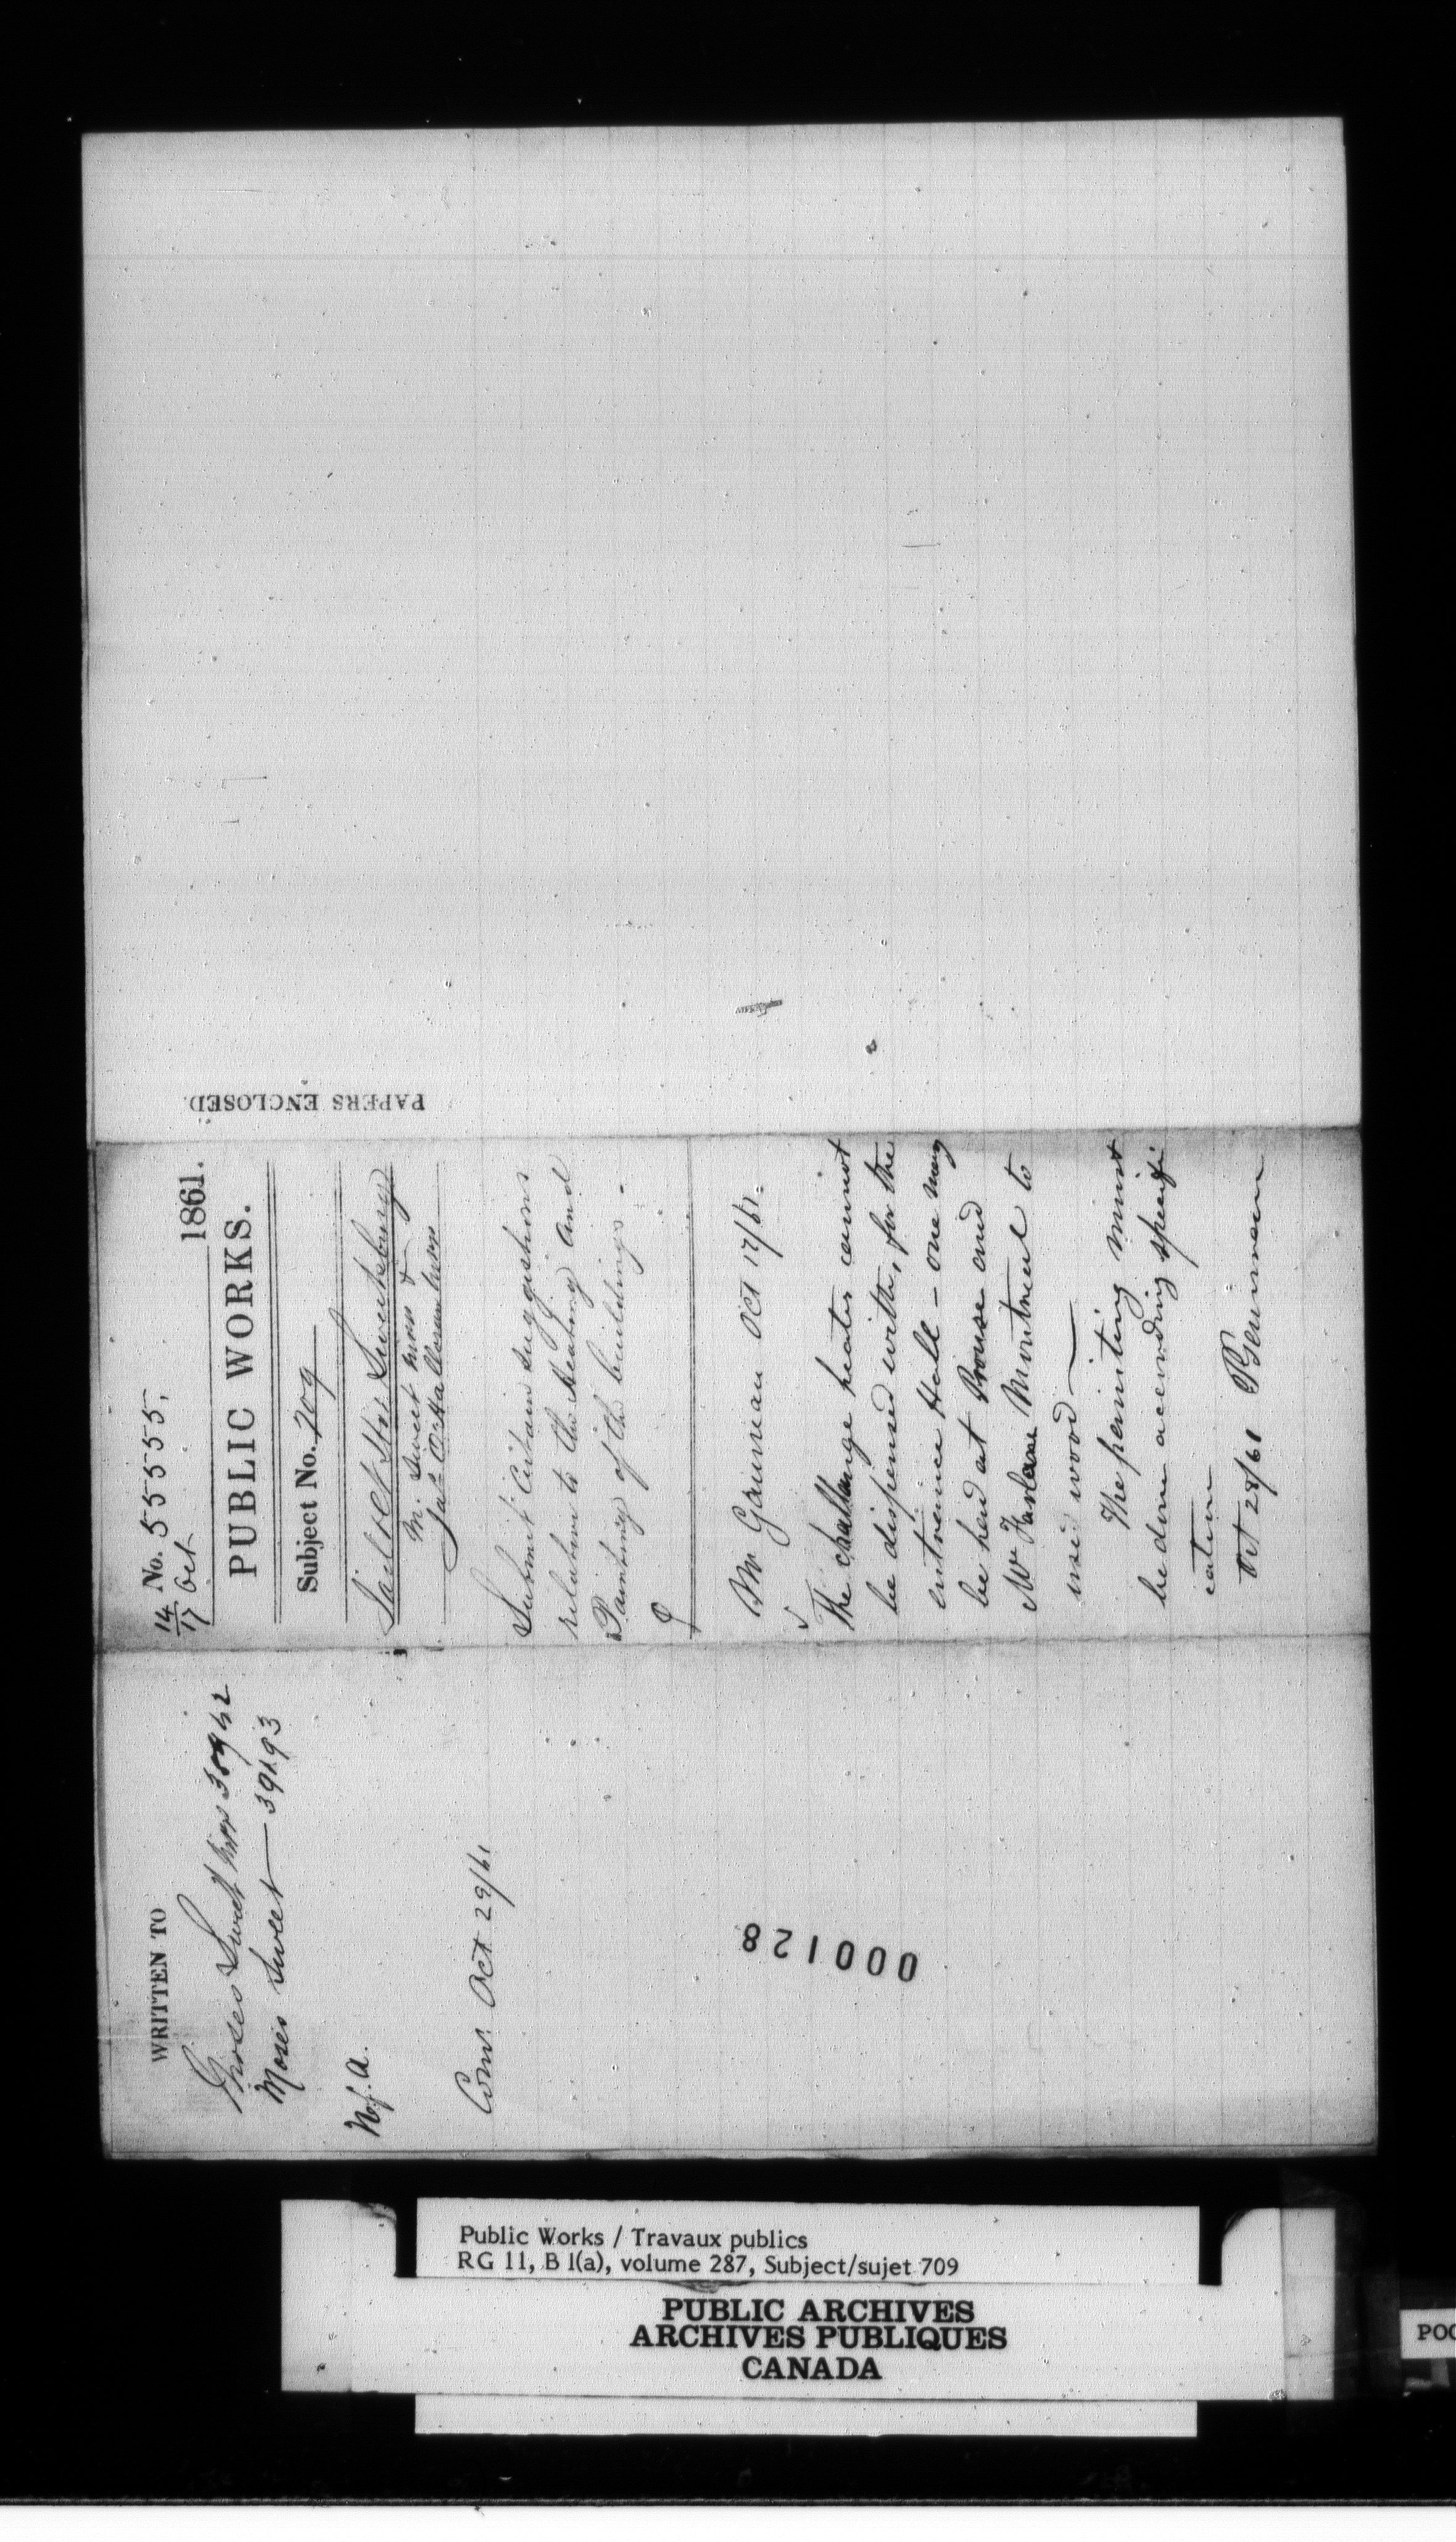 PAPERS ENCLOSED.
14/17 Oct. No. 55555, 1861.
PUBLIC WORKS.
Subject No. 709
Jail & Ct. Ho: Sweetsburg
M. Sweet &
Jas. O'Halloran
Submit certain suggestions
relative to the heating and
Painting of the buildings.
Mr Gauvreau Oct 17/61.
The challenge heater cannot
be dispensed with, for the
entrance Hall - one may
be had at Prowse and
McFarlane Montreal to
use wood —
The painting must
be done according specifi
cation
Oct 28/61
WRITTEN TO
Moses Sweet 38942
Moses Sweet — 39193
N.f.A.
Comr. Oct 29/61
000128
Public Works / Travaux publics
RG 11, B 1(a), volume 287, Subject/sujet 709
PUBLIC ARCHIVES
ARCHIVES PUBLIQUES
CANADA